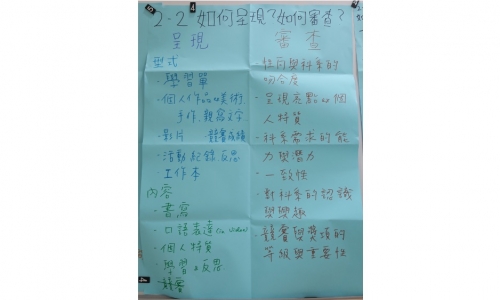 2-2 如何呈現?如何審查?
呈現
型式
·學習單
·個人作品 美術、
手作、觀察文字
·影片 ·競賽成績
·活動紀錄 反思
·工作本
內容
·書寫
·口語表達 (video)
·個人特質
·學習 反思
審查
·性向與科系的
吻合度
·呈現亮點 個
人特質
·科系需求的能
力與潛力
·一致性
·對科系的認識
與興趣
·競賽與獎項的
等級與重要性